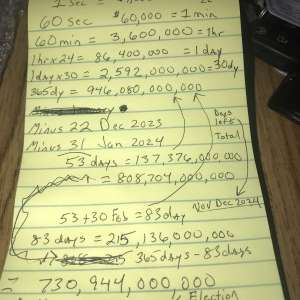 1 sec =
60 sec $60,000 = 1 min
60 min = 3,600,000 = 1hr
1hr x 24 = 86,400,000 = 1 day
1 day x 30 = 2,592,000,000 = 30 dy
365 dy = 946,080,000,000
Minus 22 Dec 2023
Minus 31 Jan 2024
Days left
Total
53 days = 137,376,000,000
= 808,704,000,000
Nov Dec 2024
53 + 30 Feb = 83 day
83 days = 215,136,000,000
365 days - 83 days
= 730,944,000,000
Election